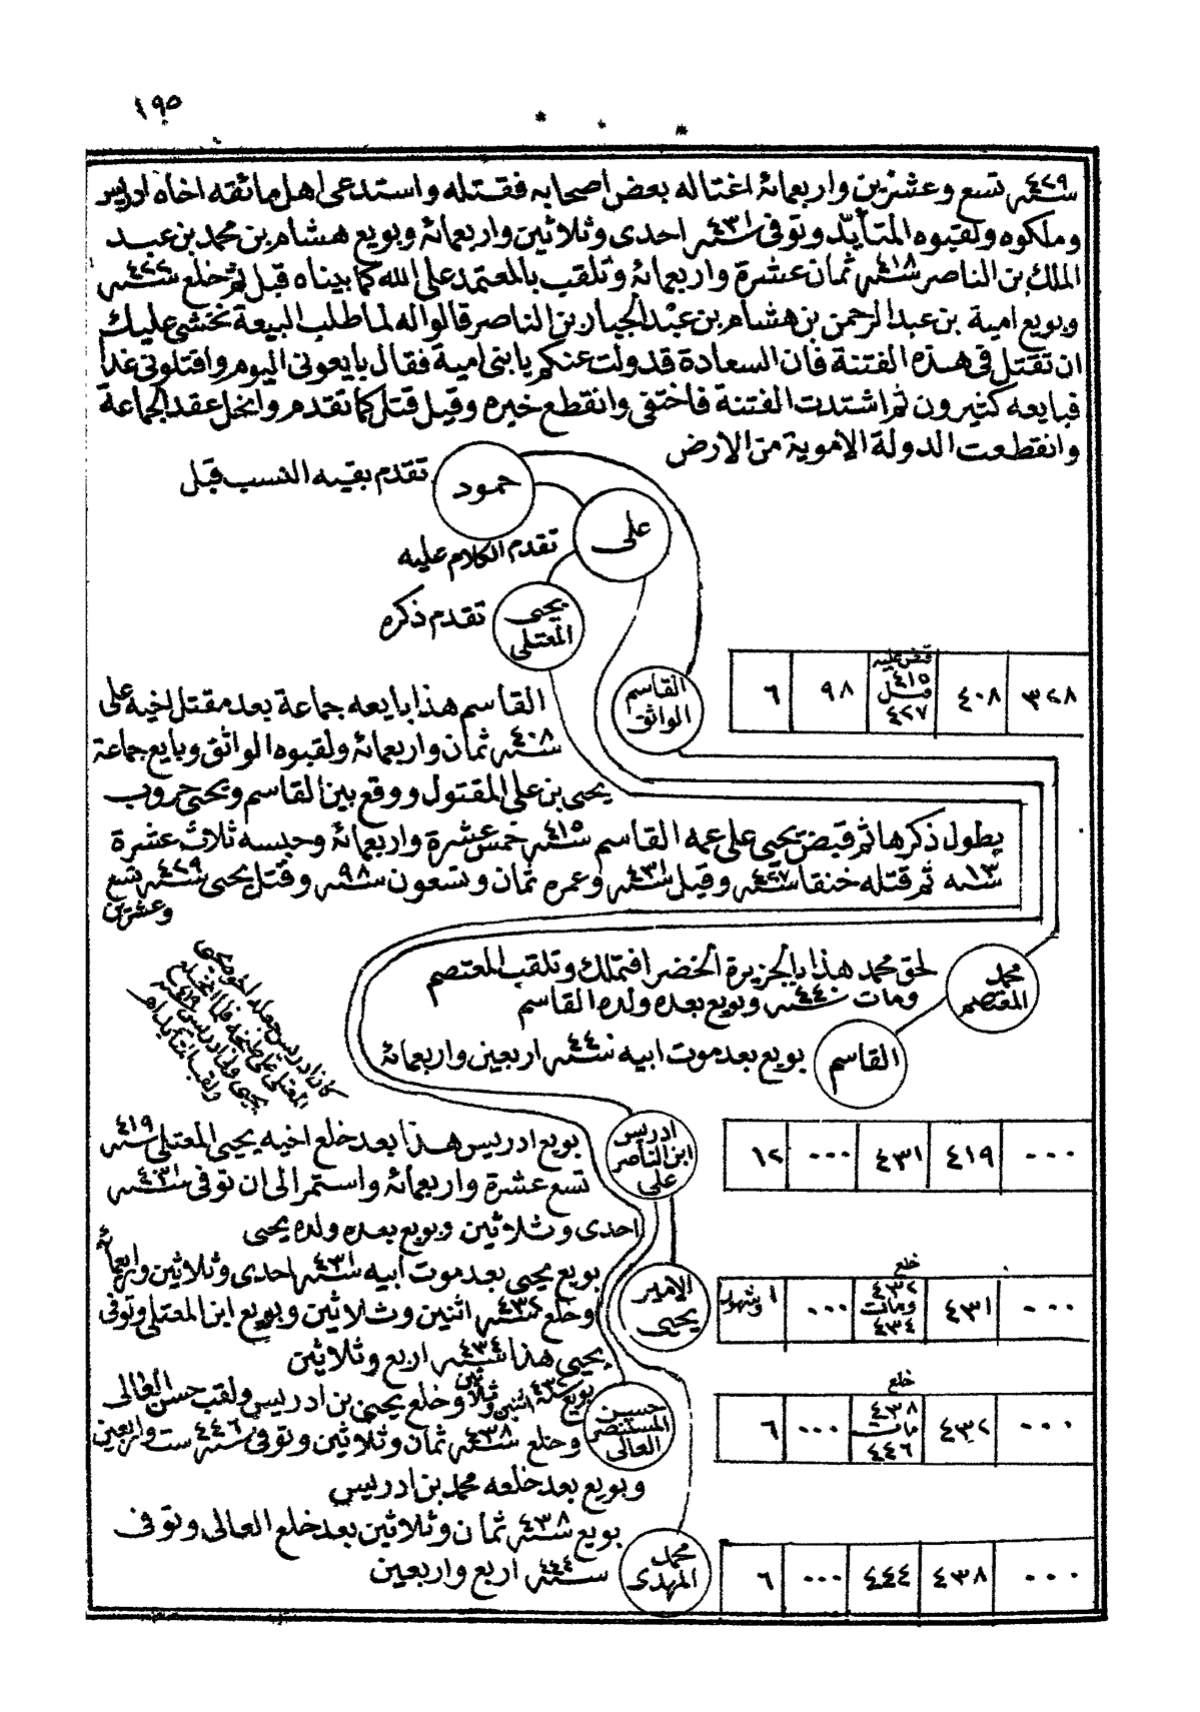 ١٩٥
سنة ٤٢٩ تسع وعشرين واربعمائة اغتاله بعض اصحابه فقتله واستدعى اهل مالقه اخاه ادريس
وملكوه ولقبوه المتأيد وتوفى سنة ٤٣١ احدى وثلاثين واربعمائة وبويع هشام بن محمد بن عبد
الملك بن الناصر سنة ٤١٨ ثمان عشرة واربعمائة وتلقب بالمعتمد على الله كما بيناه قبل ثم خلع سنة ٤٢٢
وبويع امية بن عبد الرحمن بن هشام بن عبد الجبار بن الناصر قالوا له لما طلب البيعة نخشى عليك
ان تقتل فى هذه الفتنة فان السعادة قد ولت عنكم يا بنى امية فقال بايعونى اليوم واقتلونى غدا
فبايعه كثيرون ثم اشتدت الفتنة فاختفى وانقطع خبره وقيل قتل كما تقدم وانحل عقد الجماعة
وانقطعت الدولة الأموية من الارض
حمود
تقدم بقيه النسب قبل
على
تقدم الكلام عليه
يحيى
المعتلى
تقدم ذكره
القاسم
الواثق
٣٢٨
٤٠٨
قبض عليه
٤١٥
قتل
٤٢٧
٩٨
٦
القاسم هذا بايعه جماعة بعد مقتل اخيه على
سنة ٤٠٨ ثمان واربعمائة ولقبوه الواثق وبايع جماعة
يحيى بن على المقتول ووقع بين القاسم ويحيى حروب
يطول ذكرها ثم قبض يحيى على عمه القاسم سنة ٤١٥ خمس عشرة واربعمائة وحبسه ثلاث عشرة
١٣ سنه ثم قتله خنقا سنة ٤٢٧ وقيل سنة ٤٣١ وعمره ثمان وتسعون سنه ٩٨ وقتل يحيى سنة ٤٢٩ تسع
وعشرين
محمد
المعتصم
لحق محمد هذا بالجزيرة الخضرا فتملك وتلقب المعتصم
ومات سنة ٤٤٠ وبويع بعده ولده القاسم
القاسم
بويع بعد موت ابيه سنة ٤٤٠ اربعين واربعمائة
كان ادريس جعله اخوه يحيى
المعتلى على طنجه فلما خلع
يحيى ولى ادريس سنة ٤١٩
ولقب بالمتأيد بالله
ادريس
ابن الناصر
على
٠٠٠
٤١٩
٤٣١
٠٠٠
١٢
بويع ادريس هذا بعد خلع اخيه يحيى المعتلى سنة ٤١٩
تسع عشرة واربعمائة واستمر الى ان توفى سنة ٤٣١
احدى وثلاثين وبويع بعده ولده يحيى
الامير
يحيى
٠٠٠
٤٣١
خلع
٤٣٢
ومات
٤٣٤
٠٠٠
١ وشهور
بويع يحيى بعد موت ابيه سنة ٤٣١ احدى وثلاثين واربعمائة
وخلع سنة ٤٣٢ اثنين وثلاثين وبويع ابن المعتلى وتوفى
يحيى هذا سنة ٤٣٤ اربع وثلاثين
حسين
المستنصر
العالى
٠٠٠
٤٣٢
خلع
٤٣٨
مات
٤٤٦
٠٠٠
٦
بويع سنة ٤٣٢ اثنين وثلاثين وخلع يحيى بن ادريس ولقب حسن العالى
وخلع سنة ٤٣٨ ثمان وثلاثين وتوفى سنة ٤٤٦ ست واربعين
وبويع بعد خلعه محمد بن ادريس
محمد
المهدى
٠٠٠
٤٣٨
٤٤٤
٠٠٠
٦
بويع سنة ٤٣٨ ثمان وثلاثين بعد خلع العالى وتوفى
سنة ٤٤٤ اربع واربعين